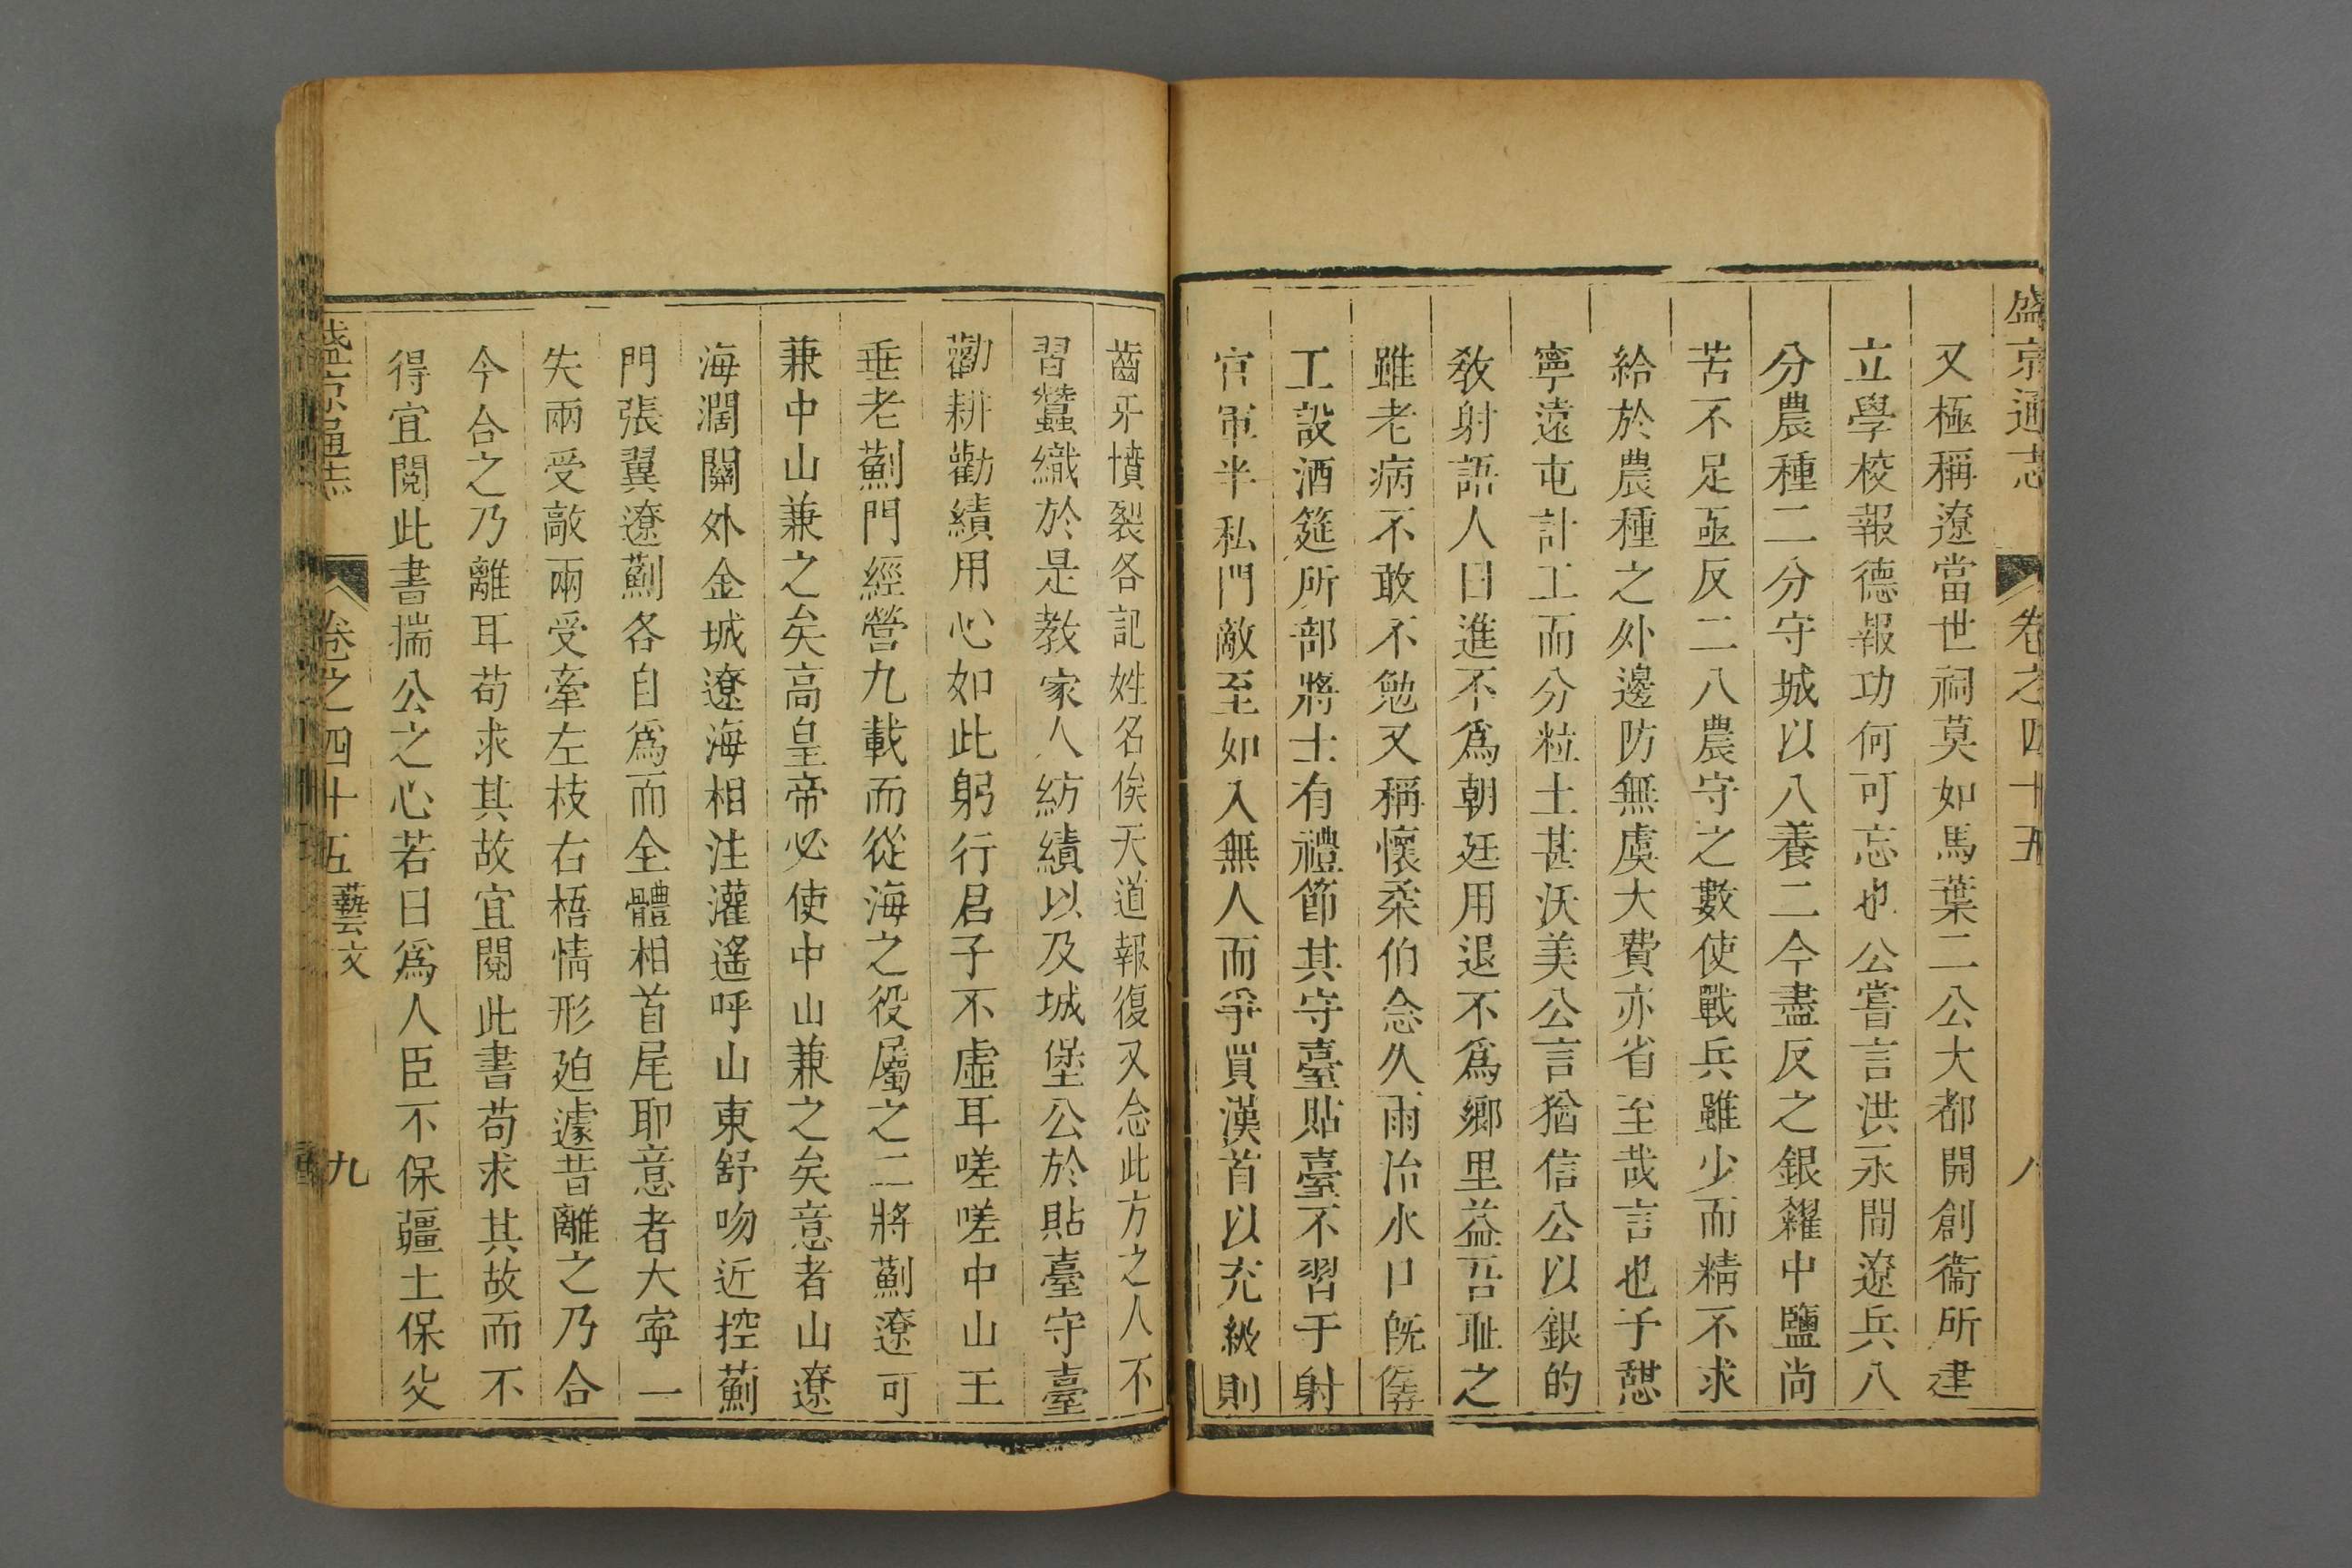 盛京通志 卷之四十五 八
又極稱遼當世祠莫如馬葉二公大都開創衞所建
立學校報德報功何可忘也公嘗言洪永間遼兵八
分農種二分守城以八養二今盡反之銀糴中鹽尚
苦不足亟反二八農守之數使戰兵雖少而精不求
給於農種之外邊防無虞大費亦省至哉言也予憇
寧遠屯計工而分粒土甚沃美公言猶信公以銀的
敎射語人曰進不爲朝廷用退不爲鄉里益吾耻之
雖老病不敢不勉又稱懷柔伯念久雨冶水口旣
工設酒筵所部將士有禮節其守臺貼臺不習于射
官軍半私門敵至如入無人而爭買漢首以充級則
齒牙憤裂各記姓名俟天道報復又念此方之人不
習蠶織於是教家人紡績以及城堡公於貼臺守臺
勸耕勸績用心如此躬行君子不虛耳嗟嗟中山王
垂老薊門經營九載而從海之役屬之二將薊遼可
兼中山兼之矣高皇帝必使中山兼之矣意者山遼
海濶關外金城遼海相注灌遙呼山東舒吻近控薊
門張翼遼薊各自爲而全體相首尾耶意者大寧一
失兩受敵兩受牽左枝右梧情形廹遽昔離之乃合
今合之乃離耳苟求其故宜閱此書苟求其故而不
得宜閱此書揣公之心若曰爲人臣不保疆土保父
盛京通志 卷之四十五 藝文 九